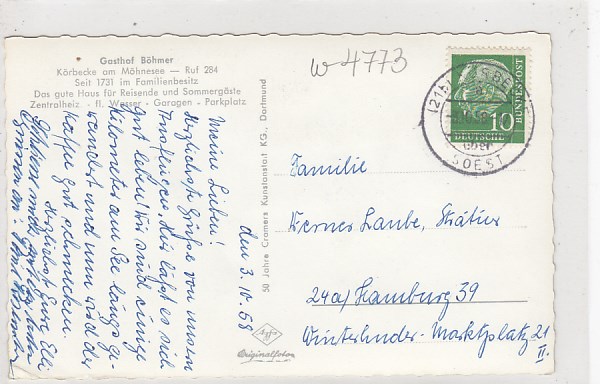 Gasthof Böhmer
Körbecke am Möhnesee — Ruf 284
Seit 1731 im Familienbesitz
Das gute Haus für Reisende und Sommergäste
Zentralheiz. - fl. Wasser - Garagen - Parkplatz
w 4773
den 3.10.58
Meine Lieben!
Herzlichste Grüße von unsern
Ausflügen. Hier läßt es sich
gut leben! Wir sind einige
Kilometer am See lang ge-
wandert und nun wird der
Kaffee gut schmecken.
Herzlichst Eure Elli
50 Jahre Cramers Kunstanstalt KG., Dortmund
Agfa
Originalfoton
DEUTSCHE
BUNDESPOST
10
SOEST
Familie
Werner Laube, Strätier
24a/ Hamburg 39
Winterhuder-Marktplatz 21
II.